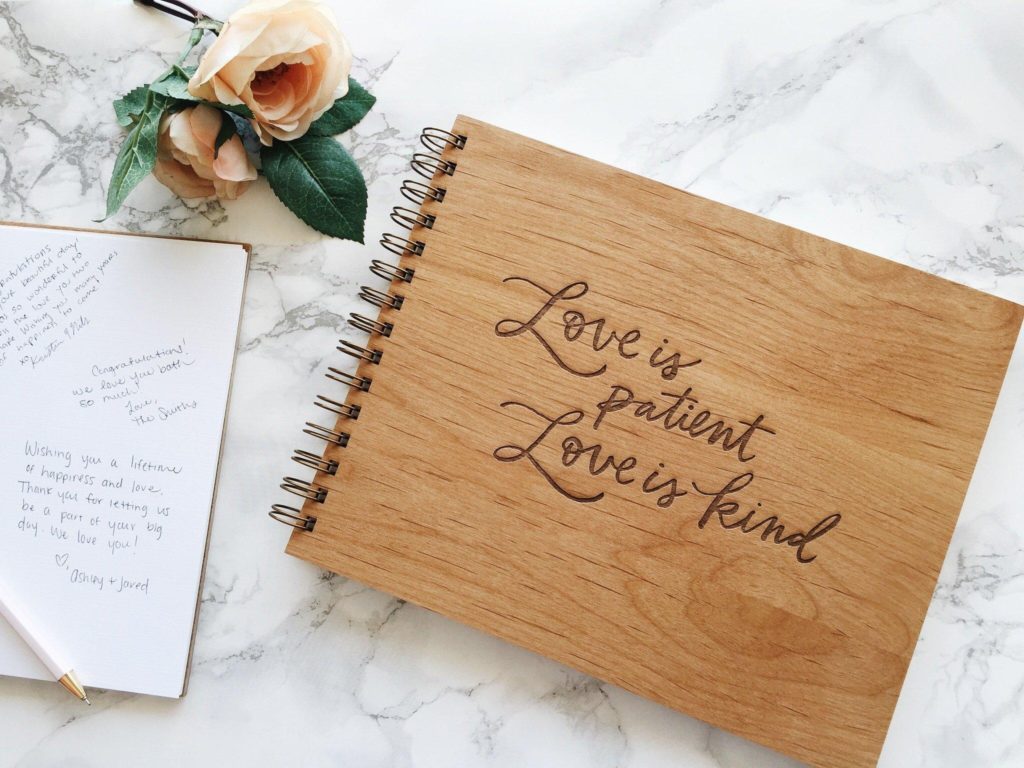 beautiful day!
so wonderful to
the love you two
Wishing you many years
happiness to come!
Congratulations!
we love you both
so much!
Love,
the Smiths
Wishing you a lifetime
of happiness and love.
Thank you for letting us
be a part of your big
day. We love you!
♡,
Ashley + Jared
Love is
patient
Love is kind